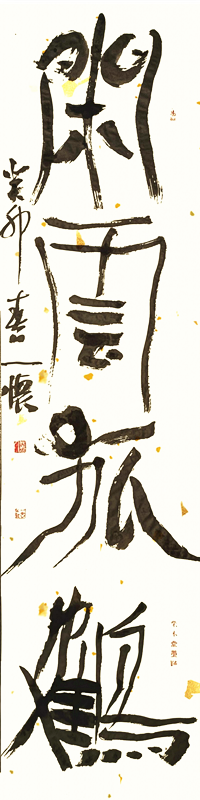 閑雲孤鶴
癸卯春一懷